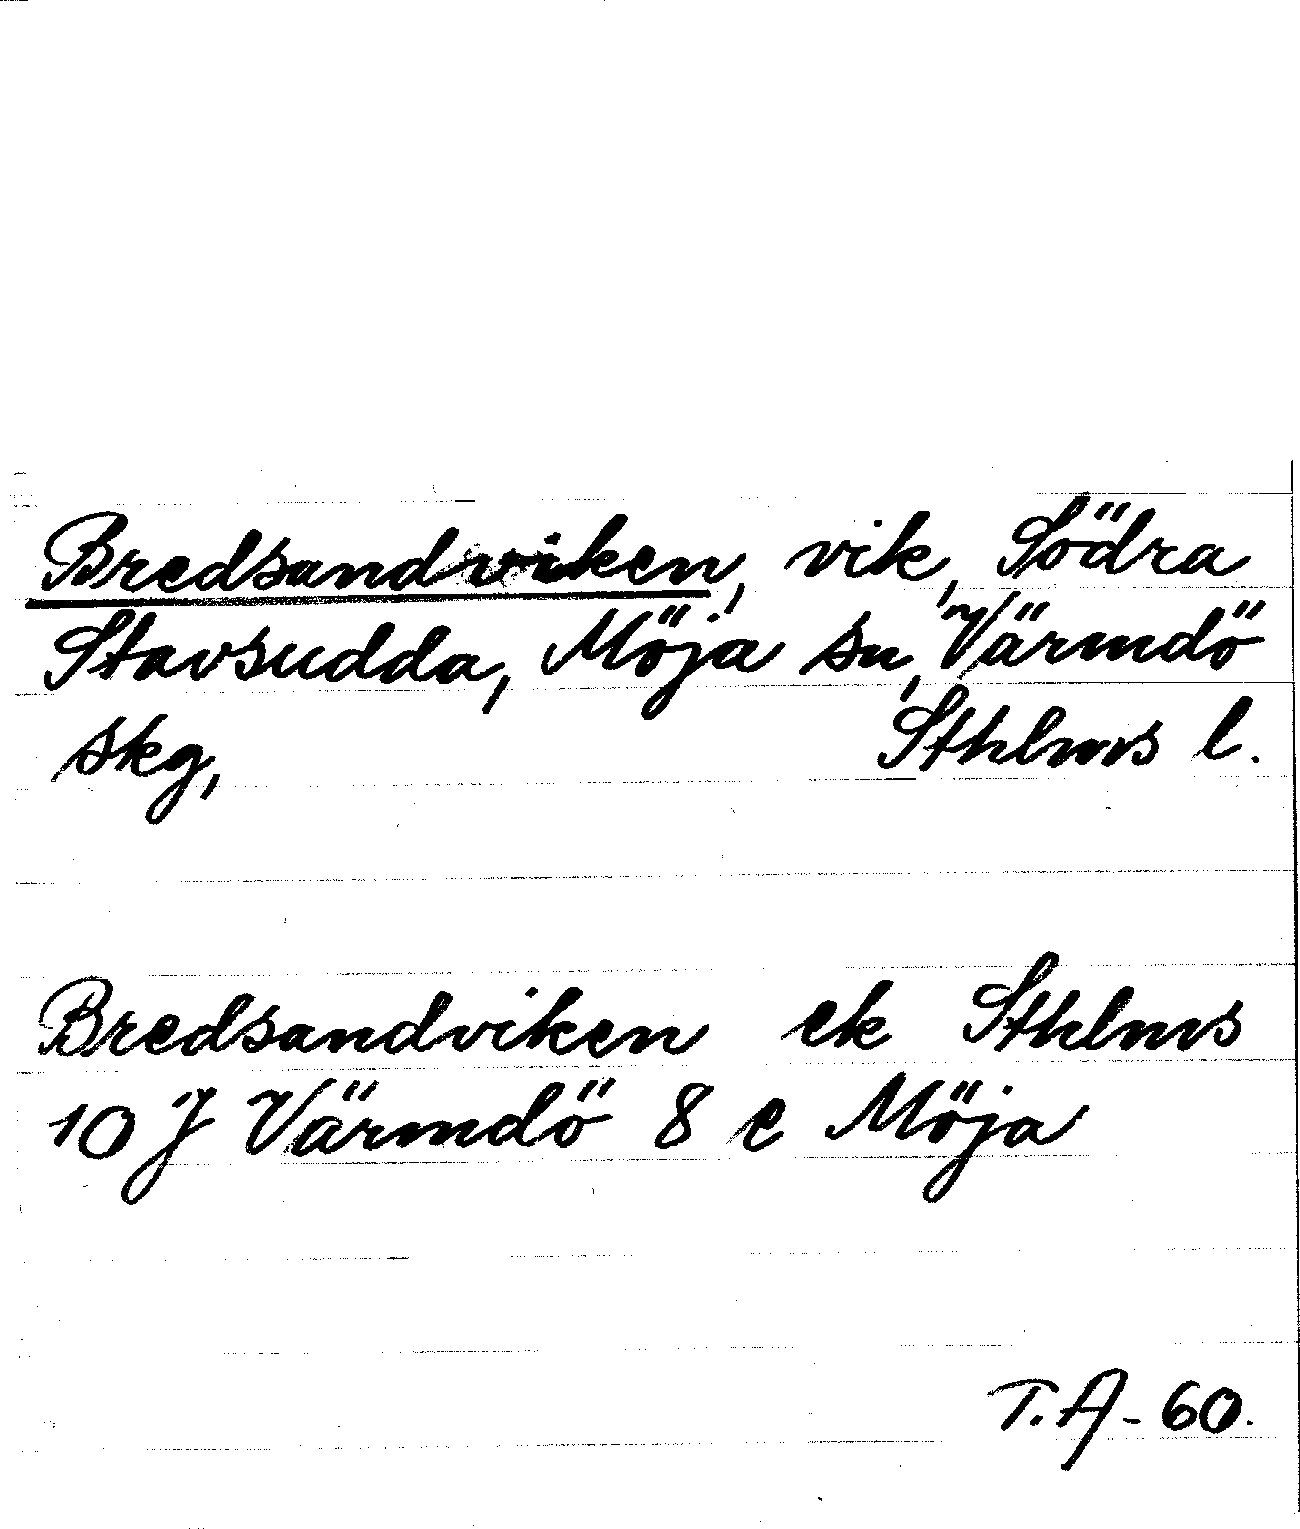 Bredsandviken, vik, Södra
Stavsudda, Möja sn, Värmdö
skg, Sthlms l.
Bredsandviken ek Sthlms
10 J Värmdö 8 e Möja
T.A-60.